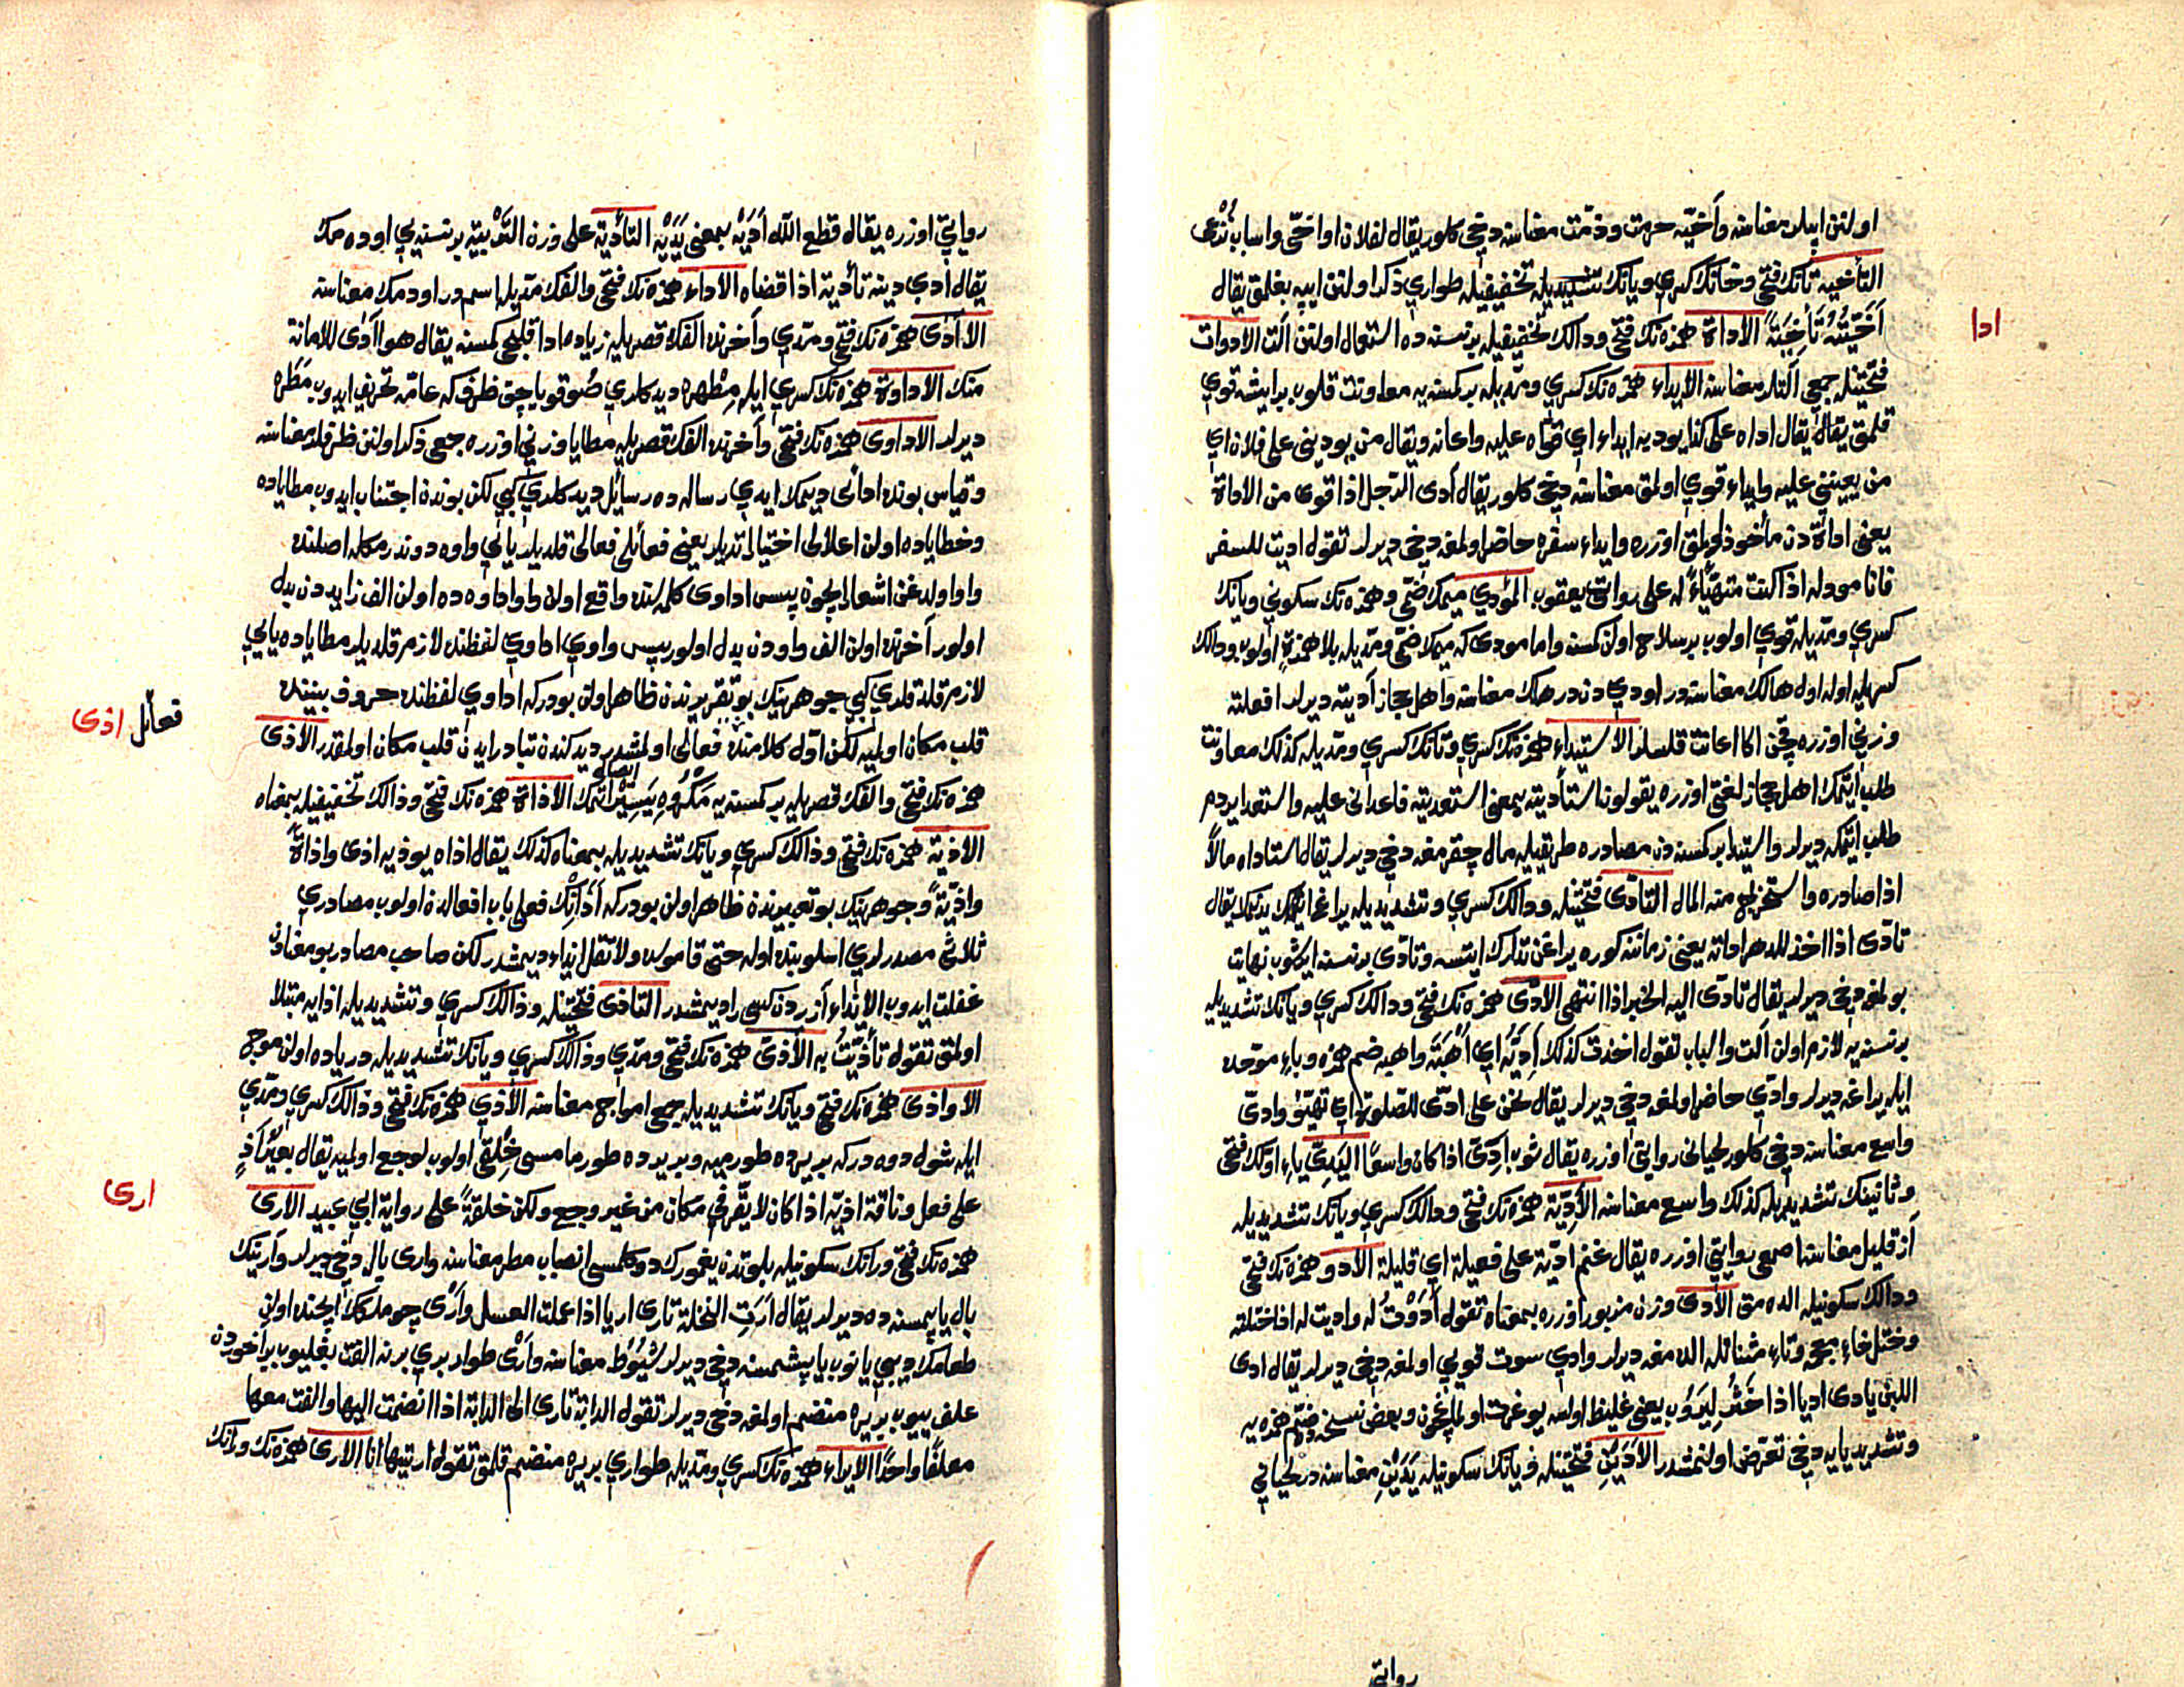 اولنن ايپلر معناسنه وآخيّه حرمت وذمّت معناسنه دخى كلور يقال لفلان اواخىّ واسباب تُدْعى
التأخية تانك فتحى وخانك كسرى ويانك تشديديله تخفيفيله طوارى ذكر اولنن ايپه بغلمق يقال
ادا
اَخَّيْتُهُ تَأْخِيَةً الاداة همزه نك فتحى ودالك تخفيفيله برنسنه ده استعمال اولنن آلت الادوات
فتحتينله جمعى آلتلر معناسنه الايداء همزه نك كسرى ومدّيله بر كمسنه يه معاونت قلوب برايشه قوى
قلمق يقال يقال اداه على كذا يوديه ايداء اى قوّاه عليه واعانه ويقال من يودينى على فلان اى
من يعيننى عليه وايداء قوى اولمق معناسنه دخى كلور يقال آدى الرّجل اذا قوى من الاداة
يعنى اداة دن مأخوذ اولمق اوزره وايداء سفره حاضر اولمغه دخى ديرلر تقول اديت للسفر
فانا مود له اذا كنت متهيّاءً له على روايت يعقوب المؤدى ميمك ضمّى وهمزه نك سكونى ويانك
كسرى ومدّيله قوى اولوب برسلاح اولن كمسنه واما مودى كه ميمك ضمّى ومدّيله بلا همزةٍ اولوب ودالك
كسريله اوله اول هالك معناسنه در اودى دن در هلك معناسنه واهل حجاز آديته ديرلر افعلته
وزنى اوزره چقن اكا اعانت قلسلر الاستيداء همزه نك كسرى وتانك كسرى ومدّيله كذلك معاونت
طلب ايتمك اهل حجاز لغتى اوزره يقولون استأديته بمعنى استعديته فاعدانى عليه واستعدا يردم
طلب ايتمكه ديرلر واستيدا بر كمسنه دن مصادره طريقيله مال چقرمغه دخى ديرلر يقال استاداه مالاً
اذا صادره واستخرج منه المال التأدّى فتحتينله ودالك كسرى وتشديديله يراغ ايتمك يقال
تأدّى اذا اخذ للدهر اداته يعنى زمانتك كوره يراغن تدارك ايتسه وتادّى برنسنه ايرشوب نهايت
بولمغه دخى ديرلر يقال تادّى اليه الخبر اذا انتهى الادىّ همزه نك فتحى ودالك كسرى ويانك تشديديله
برنسنه يه لازم اولن آلت والباب تقول اخذت كذلك اَدِيَّه اى اُهْبَتَه واهبه ضم همزه وباء موحّده
ايله يراغه ديرلر وادّى حاضر اولمغه دخى ديرلر يقال نحن على ادىّ للصّلوة اى تهيّؤ وادىّ
واسع معناسنه دخى كلور لحيانى روايتى اوزره يقال ثوب اَدِىّ اذا كان واسعاً اليَدِىّ ياء اولك فتحى
وثانينك تشديديله كذلك واسع معناسنه الأدِيّة همزه نك فتحى ودالك كسرى ويانك تشديديله
آز قليل معناسنه اصمعى روايتى اوزره يقال غنم اديّة على فعيلة اى قليلة الادو همزه نك فتحى
ودالك سكونيله الدامق الأدى وزن مزبور اوزره بمعناه تقول أَدَوْتُ له واديت له اذا ختلته
وختل خاء معجمه وتاء مثناتله الدامغه ديرلر وادى سوت قويى اولمغه دخى ديرلر يقال ادى
اللبن يادى اديا اذا خَثُر لِيَرُوب يعنى غليظ اولسه يوغرت اولمقچون وبعض نسخه ده ضم همزه يه
وتشديد يايه دخى تعرّض اولنمشدر الاَدَيْنِ فتحتينله ويانك سكونيله يَدَيْنِ معناسنه در لحيانى
روايتى
روايتى اوزره يقال قطع الله اَدَيْهِ بمعنى يَدَيْهِ التأدية على وزن التّربية برنسنه يى اوده مك
يقال ادى دينه تأدية اذا قضاه الاداء همزه نك فتحى والفك مدّيله اسمدر اودمك معناسنه
الاآدى همزه نك فتحى ومدّى وآخرنده الفك قصريله زياده ادا قلجى كمسنه يقال هو اآدى للامانة
منك الاداوة همزه نك كسرى ايله مِطْهره ديدكلرى صو قوياجق ظرف كه عامّه تحريف ايدوب مَطَره
ديرلر الاداوى همزه نك فتحى وآخرنده الفك قصريله مطايا وزنى اوزره جمعى ذكر اولنن ظرفلر معناسنه
وقياس بونده ادائى ديمك ايدى رساله ده رسائل ديدكلرى كبى لكن بوندن اجتناب ايدوب مطاياده
وخطاياده اولن اعلالى اختيار ايتديلر يعنى فعائلى فعالى قلديلر يائى واوه دوندرمكله اصلنده
واو اولدغن اشعار ايچون پس اداوى كلمه سنده واقع اولن واو اداوه ده اولن الف زايده دن بدل
اولور آخرنده اولن الف واودن بدل اولور پس واوى اداوى لفظنده لازم قلديلر مطاياده يايى
لازم قلدقلرى كبى جوهرينك بو تقريرندن ظاهر اولن بودركه اداوى لفظنده حروف بيننده
فعائل اذى
قلب مكان اولميه لكن اوّل كلامنده فعالى اولمشدر ديدكندن تبادر ايدن قلب مكان اولمقدر الأذى
همزه نك فتحى والفك قصريله بر كمسنه يه مكروه ايصال ايتمك الأذاة همزه نك فتحى وذالك تخفيفيله بمعناه
الأذيّة همزه نك فتحى وذالك كسرى ويانك تشديديله بمعناه كذلك يقال اذاه يوذيه اذى واذاةً
واذيّةً وجوهرينك بو تعبيرندن ظاهر اولن بودركه اَذاتك فعلى باب افعالدن اولوب مصادرى
ثلاثى مصدرلرى اسلوبنده اوله حتى قاموسده ولا تقل ايذاء ديمشدر لكن صاحب مصادر بو معنادن
غفلت ايدوب الايذاء آزردن كسى را ديمشدر التأذى فتحتينله وذالك كسرى وتشديديله اذايه مبتلا
اولمق تقول تأذّيتُ به الأذىّ همزه نك فتحى ومدّى وذالك كسرى ويانك تشديديله درياده اولن موج
الاواذى همزه نك فتحى ويانك تشديديله جمعى امواج معناسنه الأذى همزه نك فتحى وذالك كسرى ومدّى
ايله شول دوه در كه بر يرده طورميه وبر يرده طورمامسى خِلقى اولوب لوجع اولميه يقال بعيرٌ اَذٍ
ارى
على فعل وناقة اذيّة اذا كان لا يقرّ فى مكان من غير وجع ولكن خلقةً على رواية ابى عبيد الأرى
همزه نك فتحى ورانك سكونيله بلوتدن يغمورك دوكلمسى انصباب مطر معناسنه وارى بال دخى ديرلر وآرينك
بال ياپمسنه ده ديرلر يقال اَرَتِ النحلة تارى اريا اذا عملت العسل وأرْى چوملكك ايچنده اولن
طعامك ديبى يانوب ياپشمسنه دخى ديرلر شُيُوط معناسنه وأرْى طوار برى برنه الفت بغليوب بر آخوردن
علف ييوب بر يره منضم اولمغه دخى ديرلر تقول الدابة تارى الى الدابة اذا انضمّت اليها والفت معها
معلفًا واحدًا الايراء همزه نك كسرى ومدّيله طوارى بر يره منضم قلمق تقول اريتها انا الارى همزه نك ورانك